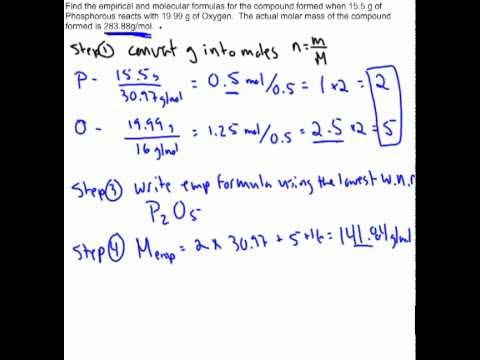 Find the empirical and molecular formulas for the compound formed when 15.5 g of
Phosphorous reacts with 19.99 g of Oxygen. The actual molar mass of the compound
formed is 283.88g/mol.
Step ① convert g into moles n = m/M
P - 15.5g / 30.97 g/mol = 0.5 mol/0.5 = 1 x2 = 2
O - 19.99 g / 16 g/mol = 1.25 mol/0.5 = 2.5 x2 = 5
Step ③ write emp formula using the lowest w.n.r
P₂O₅
Step ④ Memp = 2 x 30.97 + 5 x 16 = 141.94 g/mol